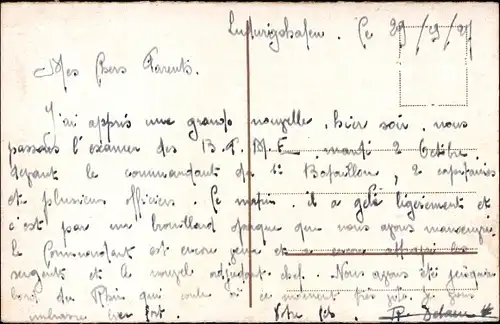 Ludwigshafen. Le 29/9/
Mes Chers Parents.
J'ai appris une grande nouvelle. hier soir. nous
passons l'examen des B.P.M.E. mardi 2 Octobre
devant le commandant du 1er Bataillon, 2 capitaines
et plusieurs officiers. Ce matin. il a gelé légèrement et
c'est par un brouillard opaque que nous avons manoeuvré
le Commandant est encore venu et a encore les
sergents et le nouvel adjudant chef. Nous avons été jusqu'au
bord du Rhin qui coule en ce moment très . Je vous
embrasse bien fort. Votre fils.